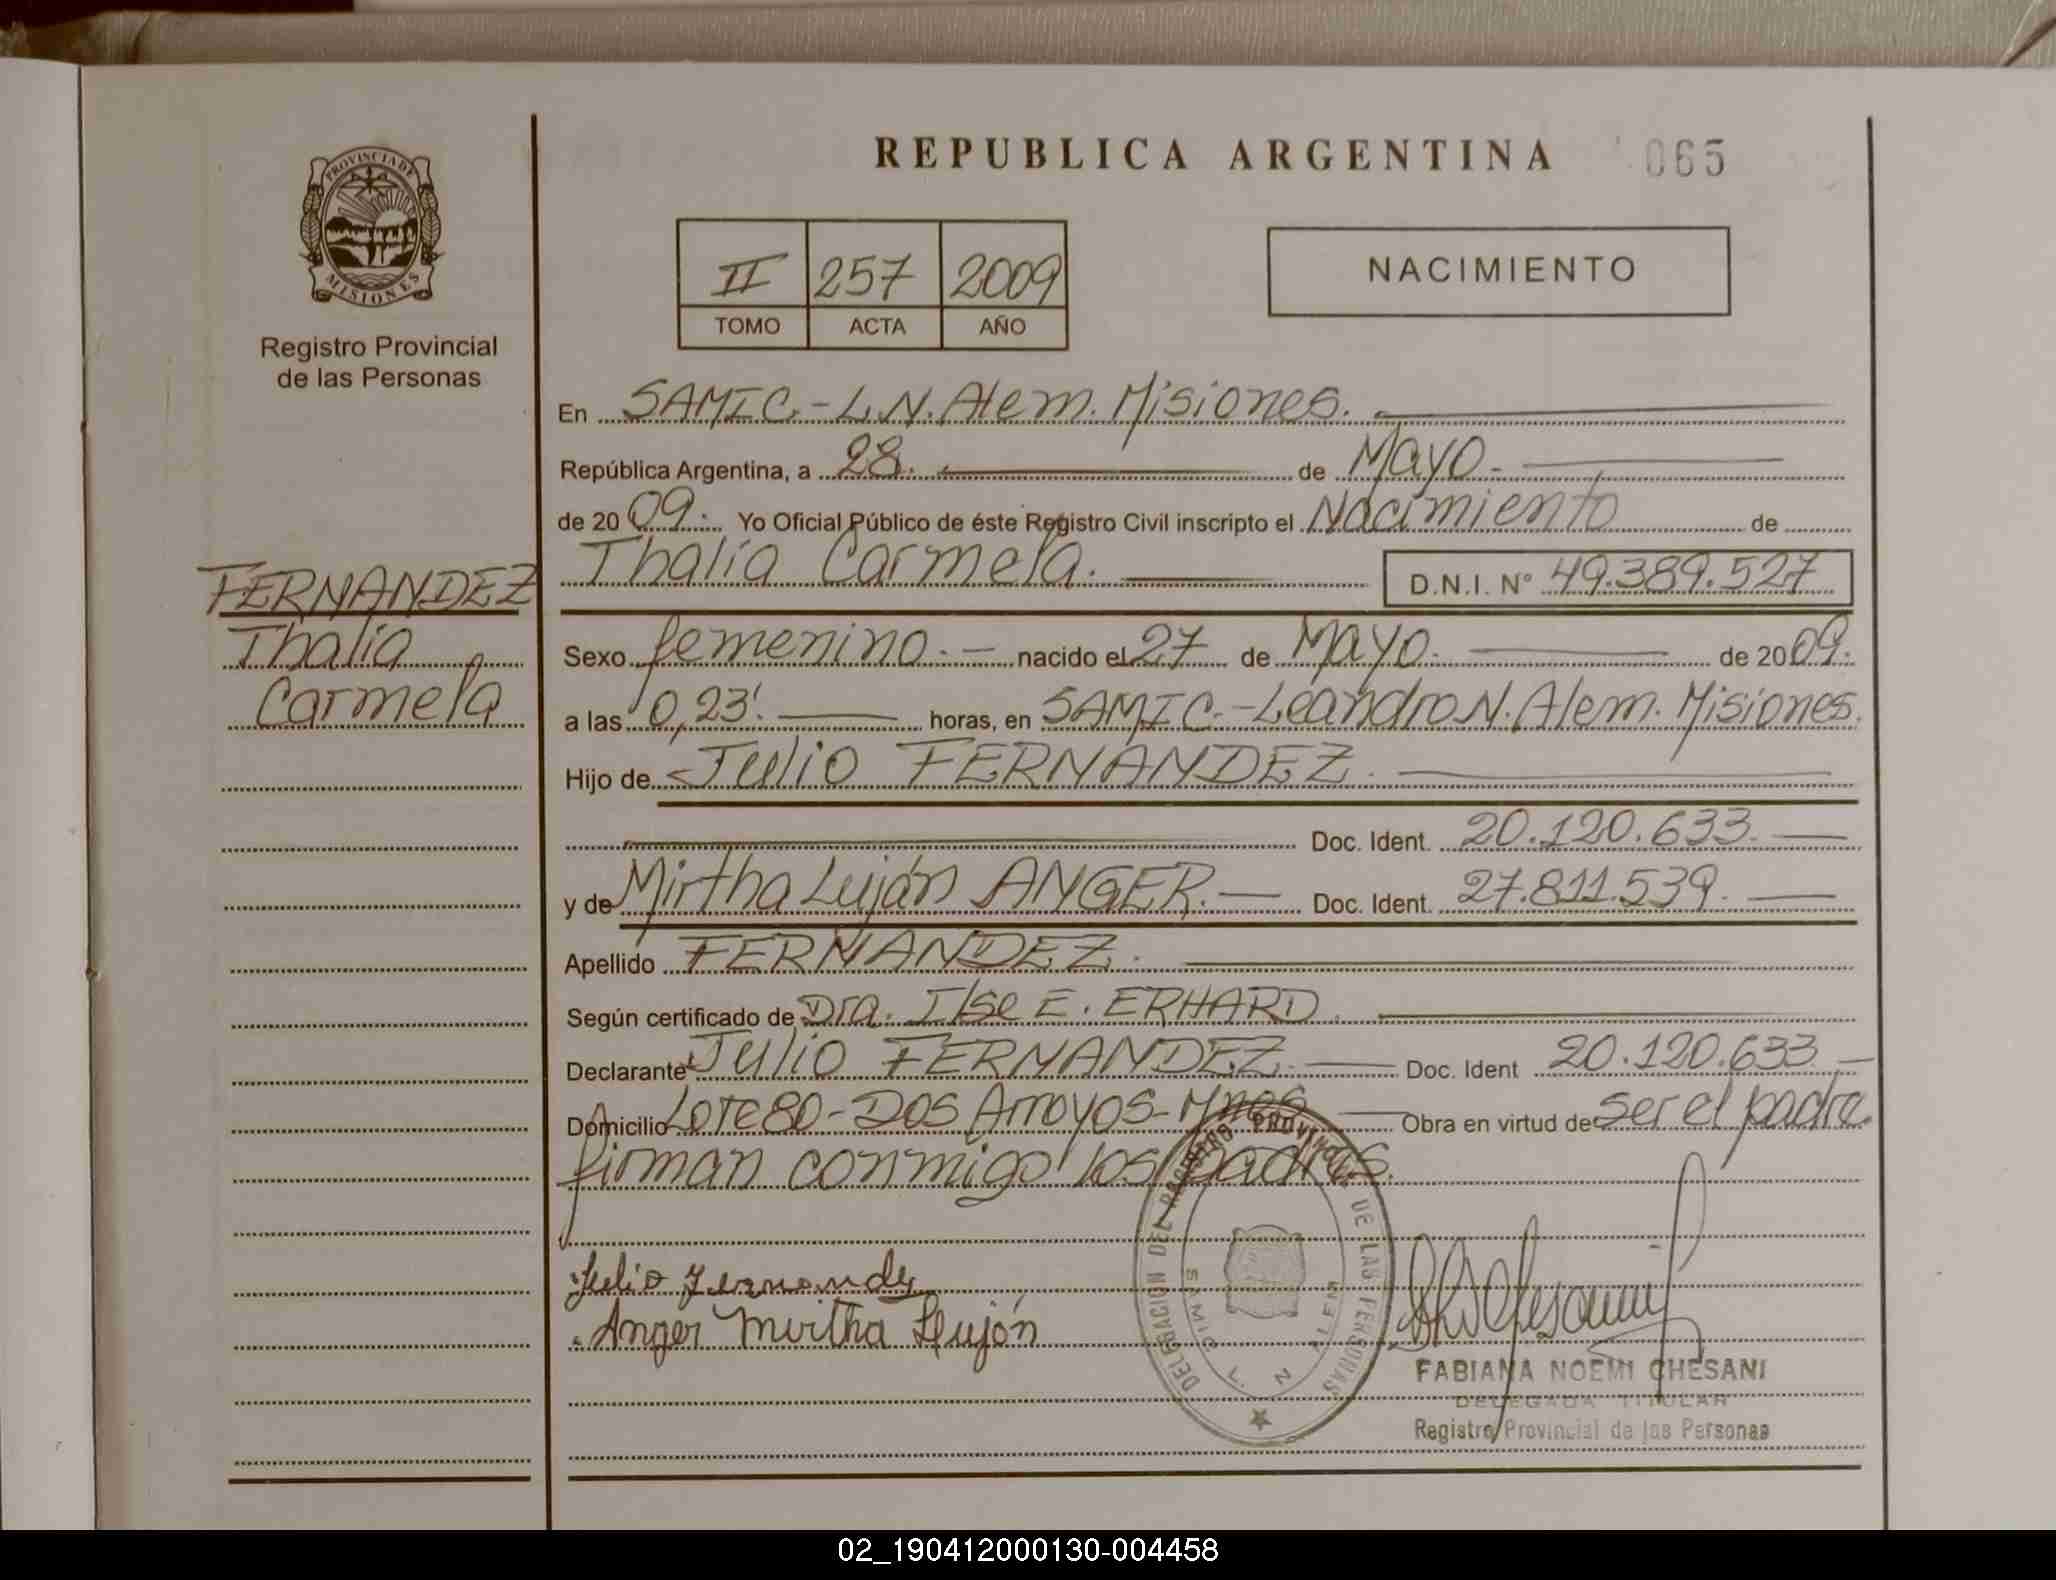 REPUBLICA ARGENTINA 065
PROVINCIA DE
MISIONES
Registro Provincial
de las Personas
II 257 2009
TOMO ACTA AÑO
NACIMIENTO
En SAMIC.-L.N.Alem.Misiones.
República Argentina, a 28. de Mayo.
de 2009. Yo Oficial Público de éste Registro Civil inscripto el Nacimiento de
Thalía Carmela. D.N.I. Nº 49.389.527
FERNANDEZ
Thalía
Carmela
Sexo femenino.- nacido el 27 de Mayo. de 2009.
a las 0,23'. horas, en SAMIC.-Leandro N.Alem.Misiones.
Hijo de Julio FERNANDEZ.
Doc. Ident. 20.120.633.
y de Mirtha Luján ANGER.- Doc. Ident. 27.811.539.
Apellido FERNANDEZ.
Según certificado de Dra. Ilse E. ERHARD.
Declarante Julio FERNANDEZ. Doc. Ident 20.120.633.
Domicilio Lote 80-Dos Arroyos-Mnes Obra en virtud de ser el padre.
firman conmigo los padres.
Julio Fernandez
Anger Mirtha Luján
DELEGACION DEL REGISTRO PROVINCIAL DE LAS PERSONAS
SAMIC L N ALEM
FABIANA NOEMI CHESANI
DELEGADA TITULAR
Registro Provincial de las Personas
02_190412000130-004458